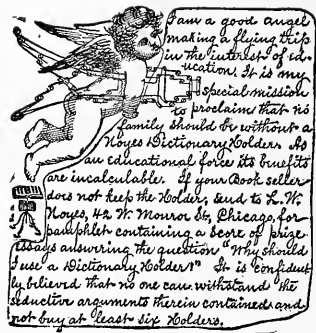 I am a good angel
making a flying trip
in the interest of ed-
ucation. It is my
special mission
to proclaim that no
family should be without a
Noyes Dictionary Holder. As
an Educational force its benefits
are incalculable. If your Book seller
does not keep the Holder, send to L. W.
Noyes, 42 W. Monroe St., Chicago, for
pamphlet containing a score of prize
essays answering the question "Why should
I use a Dictionary Holder?" It is confident-
ly believed that no one can withstand the
seductive arguments therein contained and
not buy at least six Holders.